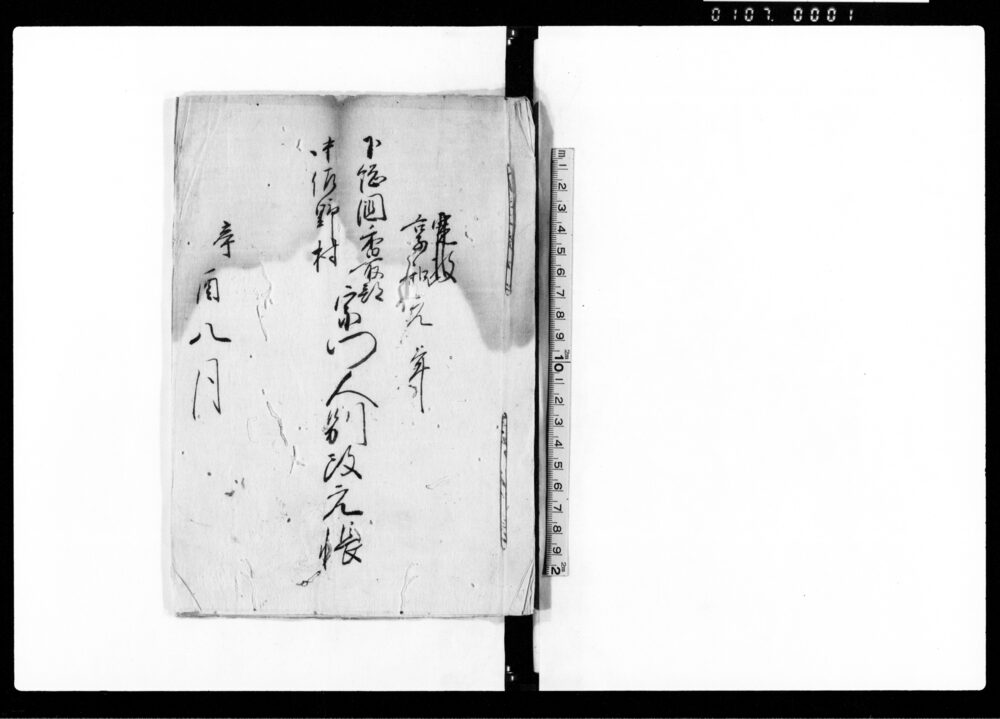 0107. 0001
寛政
享和元年
下総國香取郡
中佐野村
宗門人別改元帳
辛酉八月
m 1 2 3 4 5 6 7 8 9 10 1 2 3 4 5 6 7 8 9 2